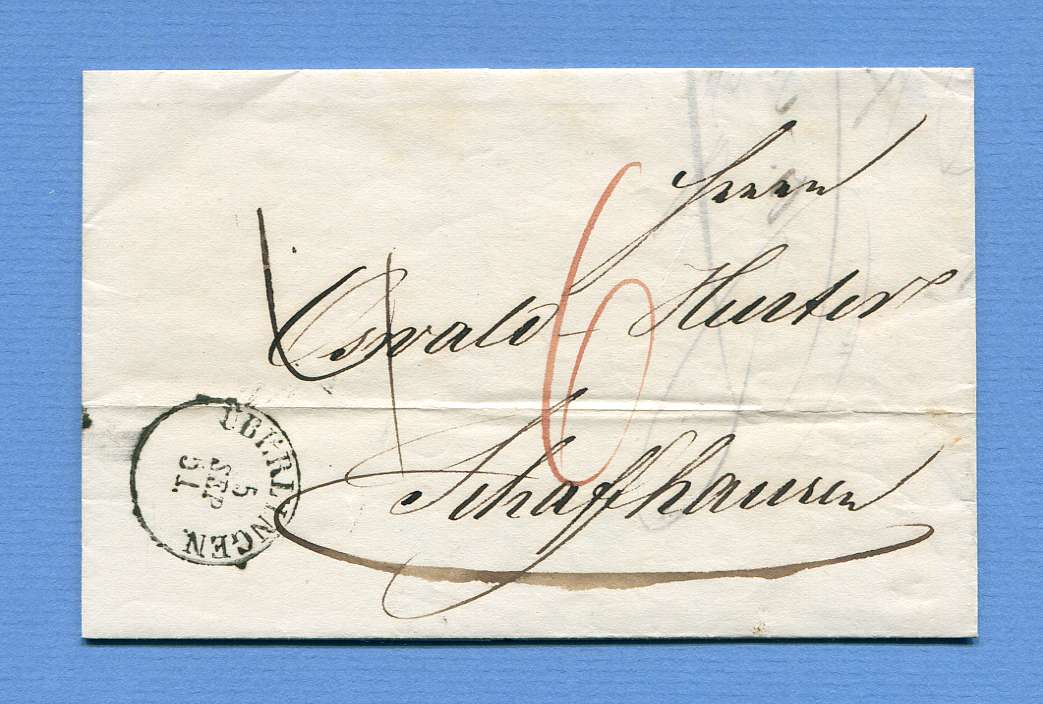 Herrn
Oswald Hurter
Schaffhausen
6
4
ÜBERLINGEN
5
SEP